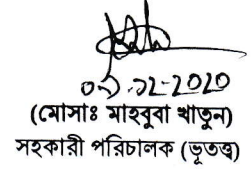 ০১-১২-2020
(মোসাঃ মাহবুবা খাতুন)
সহকারী পরিচালক (ভূতত্ত্ব)